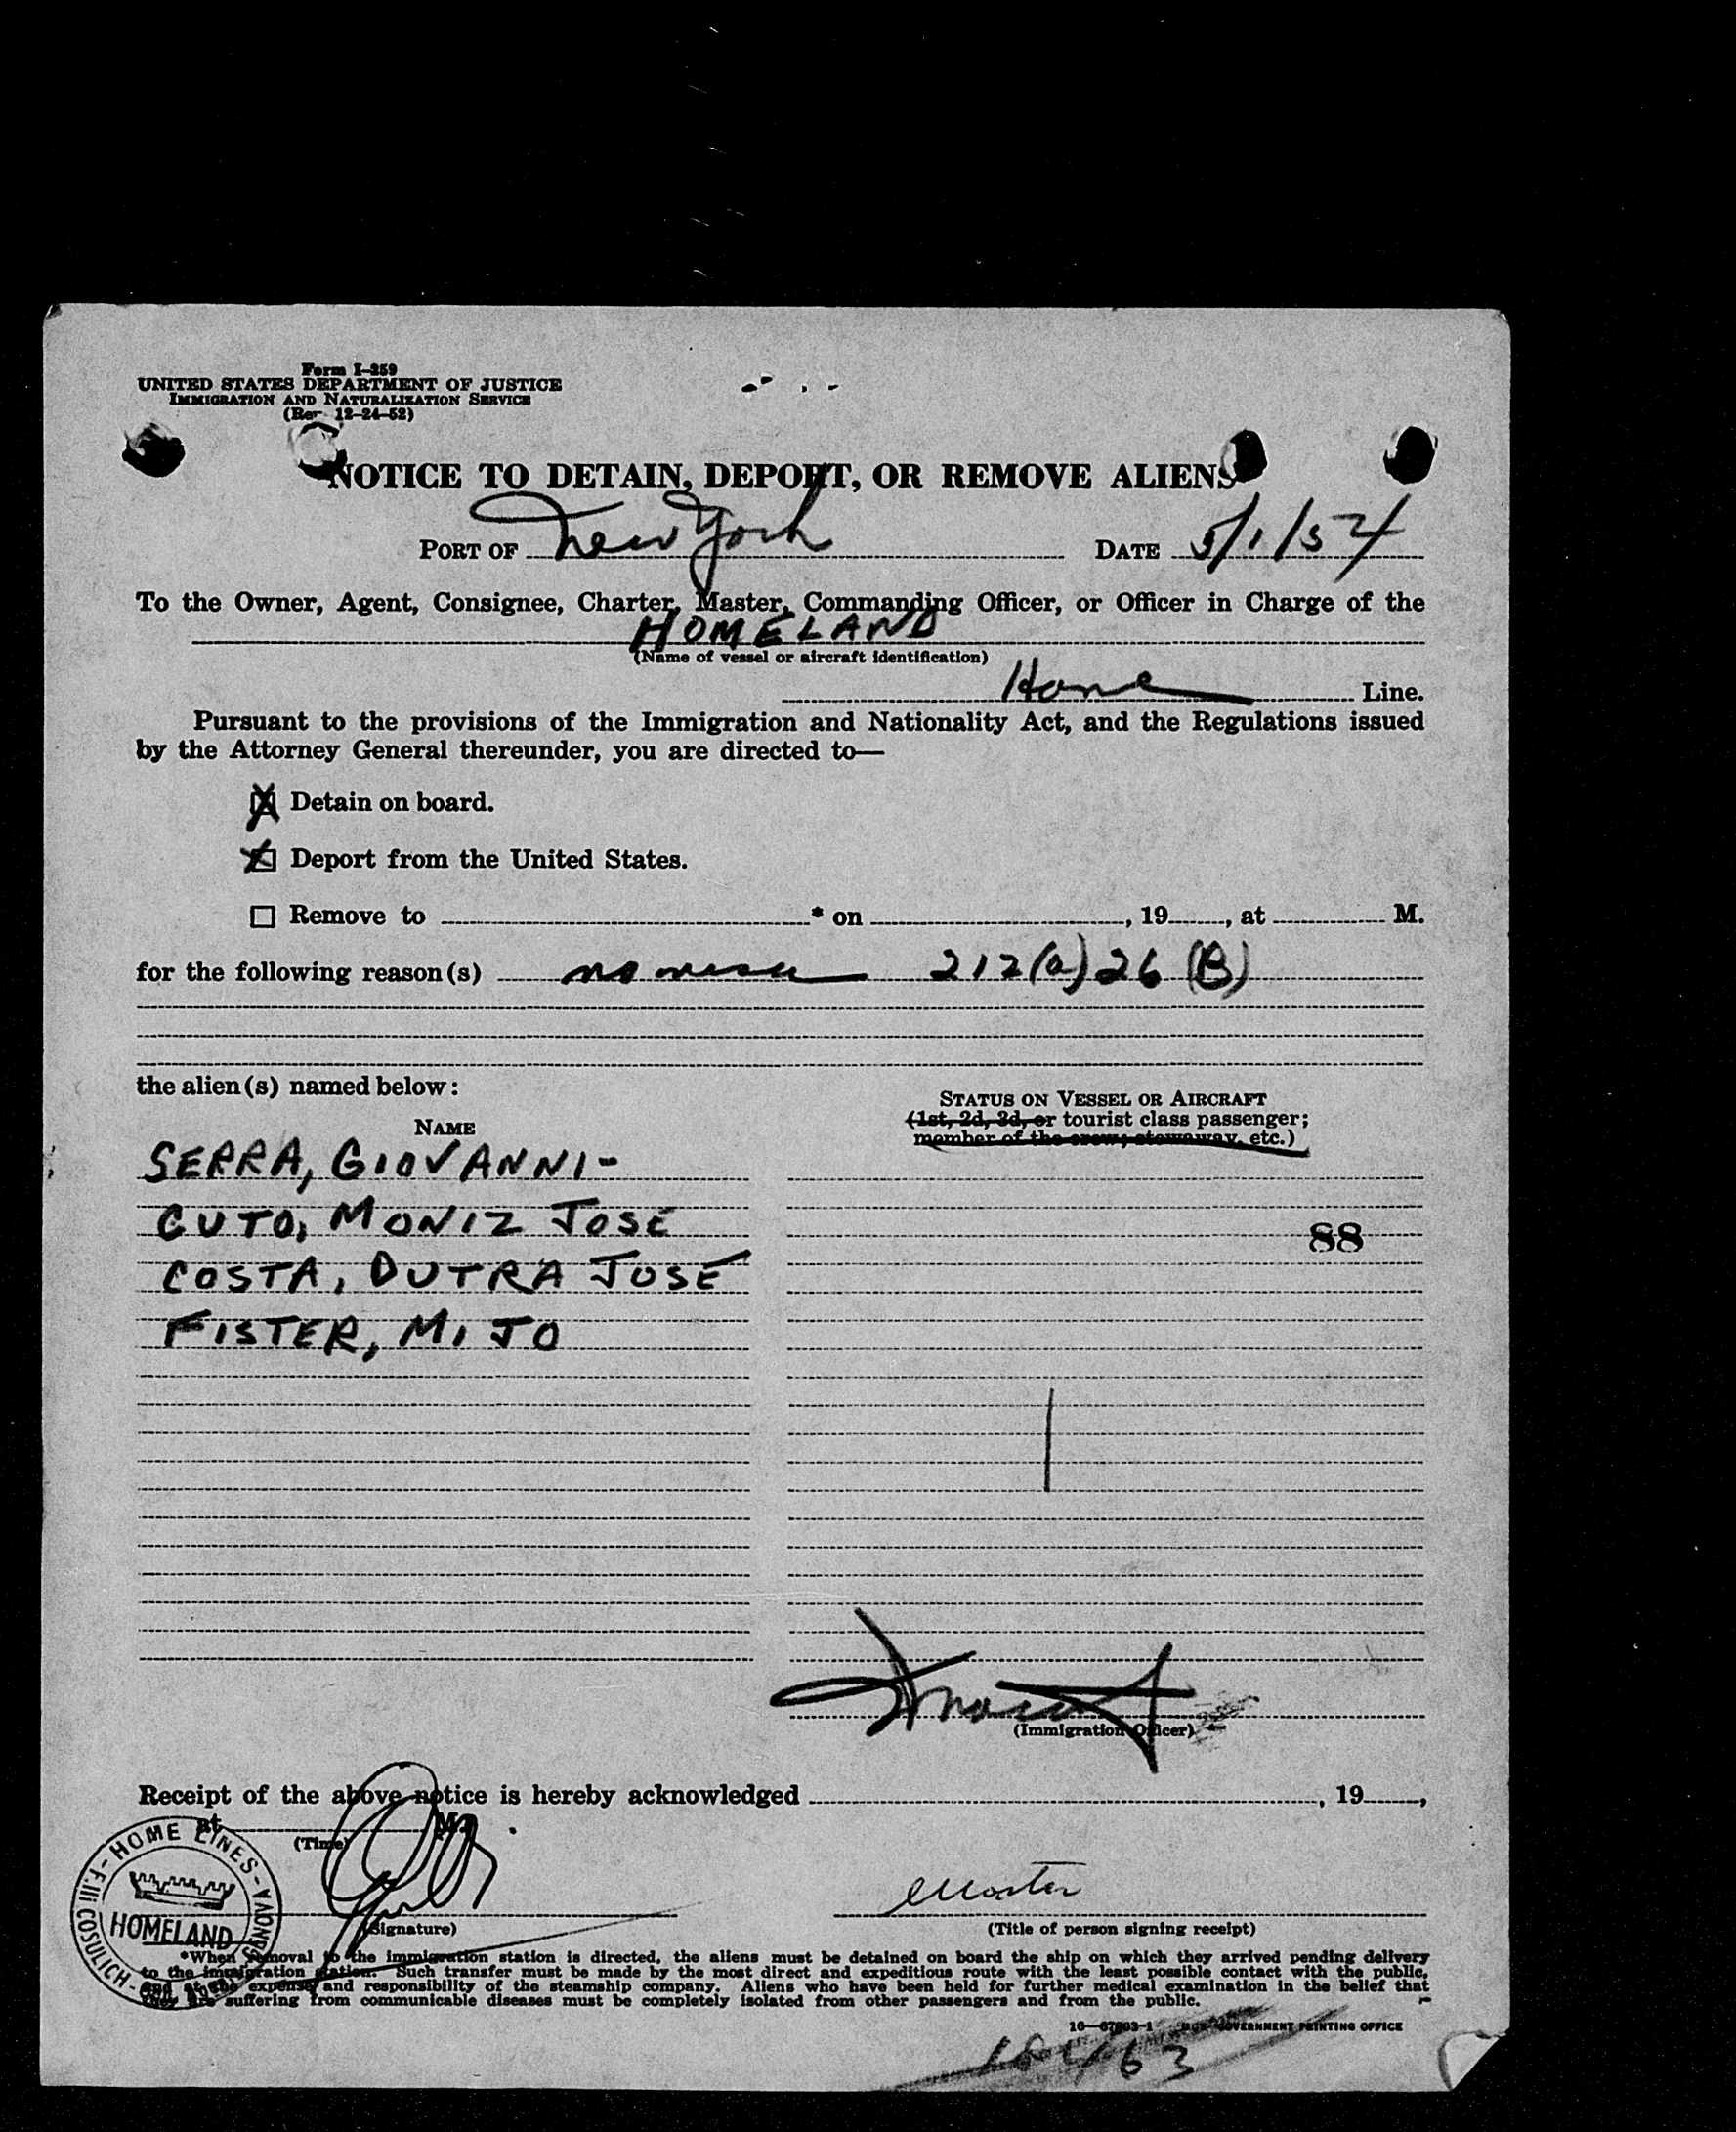 Form I-259
UNITED STATES DEPARTMENT OF JUSTICE
IMMIGRATION AND NATURALIZATION SERVICE
(Rev. 12-24-52)
NOTICE TO DETAIN, DEPORT, OR REMOVE ALIENS
PORT OF New York DATE 5/1/54
To the Owner, Agent, Consignee, Charter, Master, Commanding Officer, or Officer in Charge of the
HOMELAND
(Name of vessel or aircraft identification)
Home Line.
Pursuant to the provisions of the Immigration and Nationality Act, and the Regulations issued
by the Attorney General thereunder, you are directed to—
X Detain on board.
X Deport from the United States.
☐ Remove to * on , 19 , at M.
for the following reason(s) no visa 212(a)26(B)
the alien(s) named below:
STATUS ON VESSEL OR AIRCRAFT
(1st, 2d, 3d, or tourist class passenger;
member of the crew; stowaway, etc.)
NAME
SERRA, GIOVANNI-
CUTO, MONIZ JOSE
88
COSTA, DUTRA JOSE
FISTER, MIJO
(Immigration Officer)
Receipt of the above notice is hereby acknowledged , 19 ,
at M.
(Time)
HOME LINES - GENOVA
F.lli COSULICH -
HOMELAND
Master
(Signature) (Title of person signing receipt)
*When removal to the immigration station is directed, the aliens must be detained on board the ship on which they arrived pending delivery
to the immigration station. Such transfer must be made by the most direct and expeditious route with the least possible contact with the public,
and at the expense and responsibility of the steamship company. Aliens who have been held for further medical examination in the belief that
they are suffering from communicable diseases must be completely isolated from other passengers and from the public.
GOVERNMENT PRINTING OFFICE